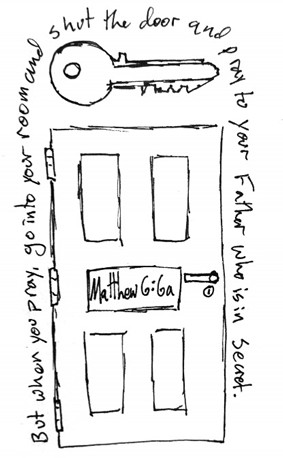 But when you pray, go into your room and
shut the door and
pray to your Father who is in secret.
Matthew 6:6a